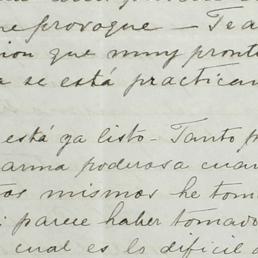 me provoque - Te a
ion que muy pront
a se está practican
está ya listo - Tanto p
arma poderosa cuan
os mismos he tom
i parece haber tomado
cual es lo dificil d